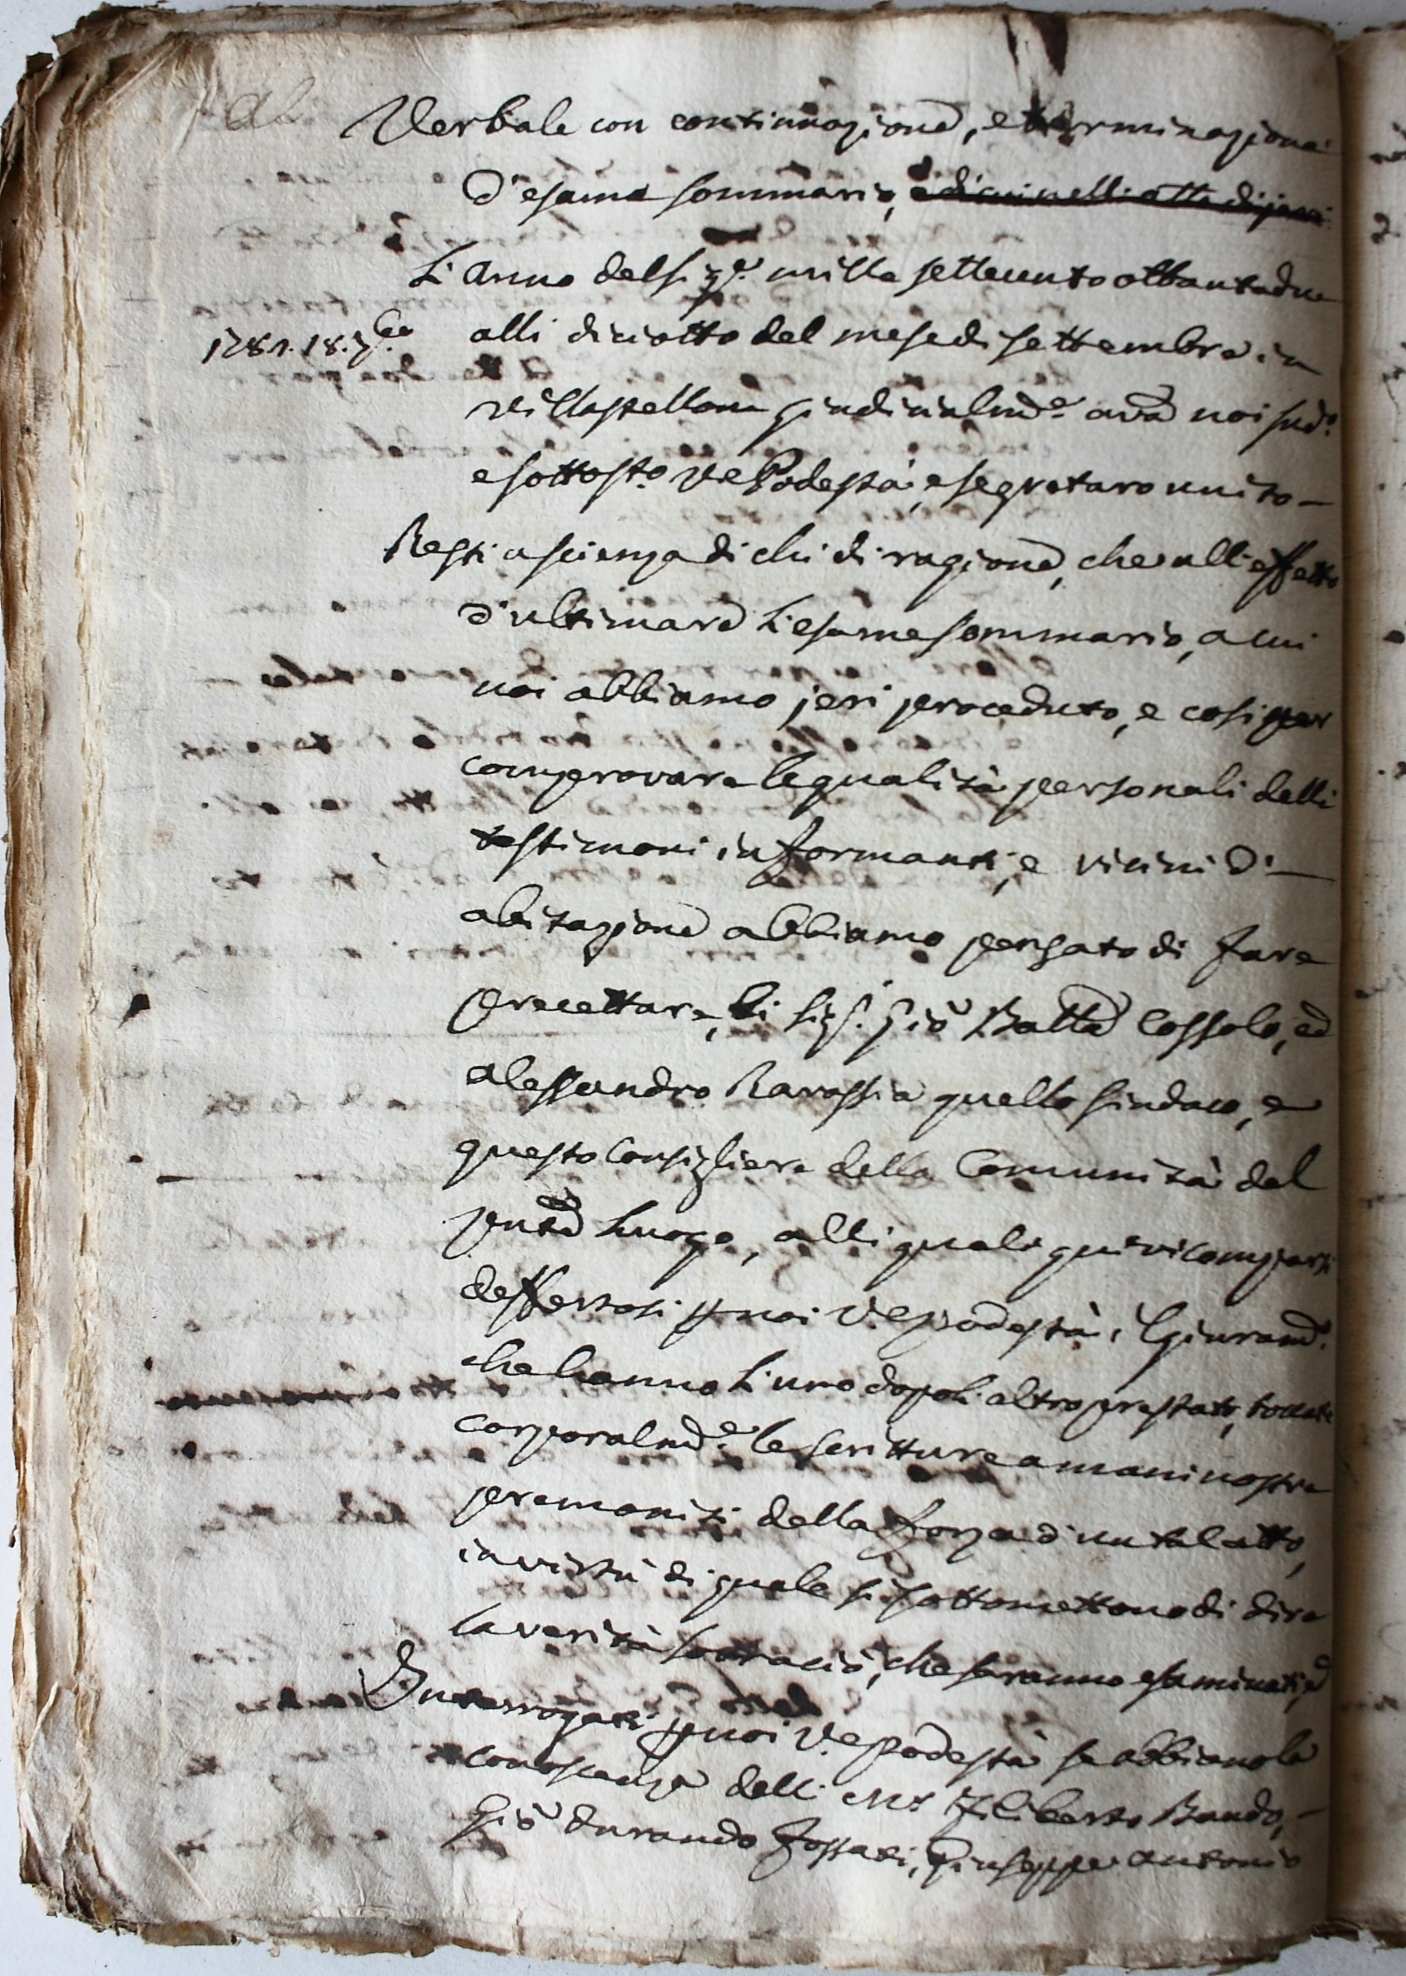 Verbale con continuazione, e terminazione
d'esame sommario, e di cui nelli atti di jeri
L'anno del Sig.e mille settecento ottantadue
1782. 18. 7bre alli dieciotto del mese di settembre in
Villastellone giudicialm.e avanti noi sud.o
e sottost.o Vepodestà, e segretaro unito –
Resti a scienza di chi di ragione, che all'effetto
d'ultimare L'esame sommario, a cui
noi abbiamo jeri proceduto, e così per
comprovare le qualità personali delli
testimoni informanti, e vicini d' –
abitazione abbiamo pensato di fare
precettare, li Sig.i Giò Batta Cossolo, ed
alessandro Ravassia quello sindaco, e
questo Consigliere della Comunità del
pnte Luogo, alli quali quivi comparsi
deffertosi p noi Vepodestà, il giuram.o
che hanno L'uno dopo L'altro prestato, toccate
corporalm.e le scritture a mani nostre
premoniti della forza d'un tal atto,
in virtù di quale si sottomettono di dire
la verità sovra ciò, che saranno esaminati, ed
Interrogati p noi Vepodestà se abbiano la
conoscenza delli Mr Filiberto Baudo, –
Giò durando fossati, Giuseppe antonio